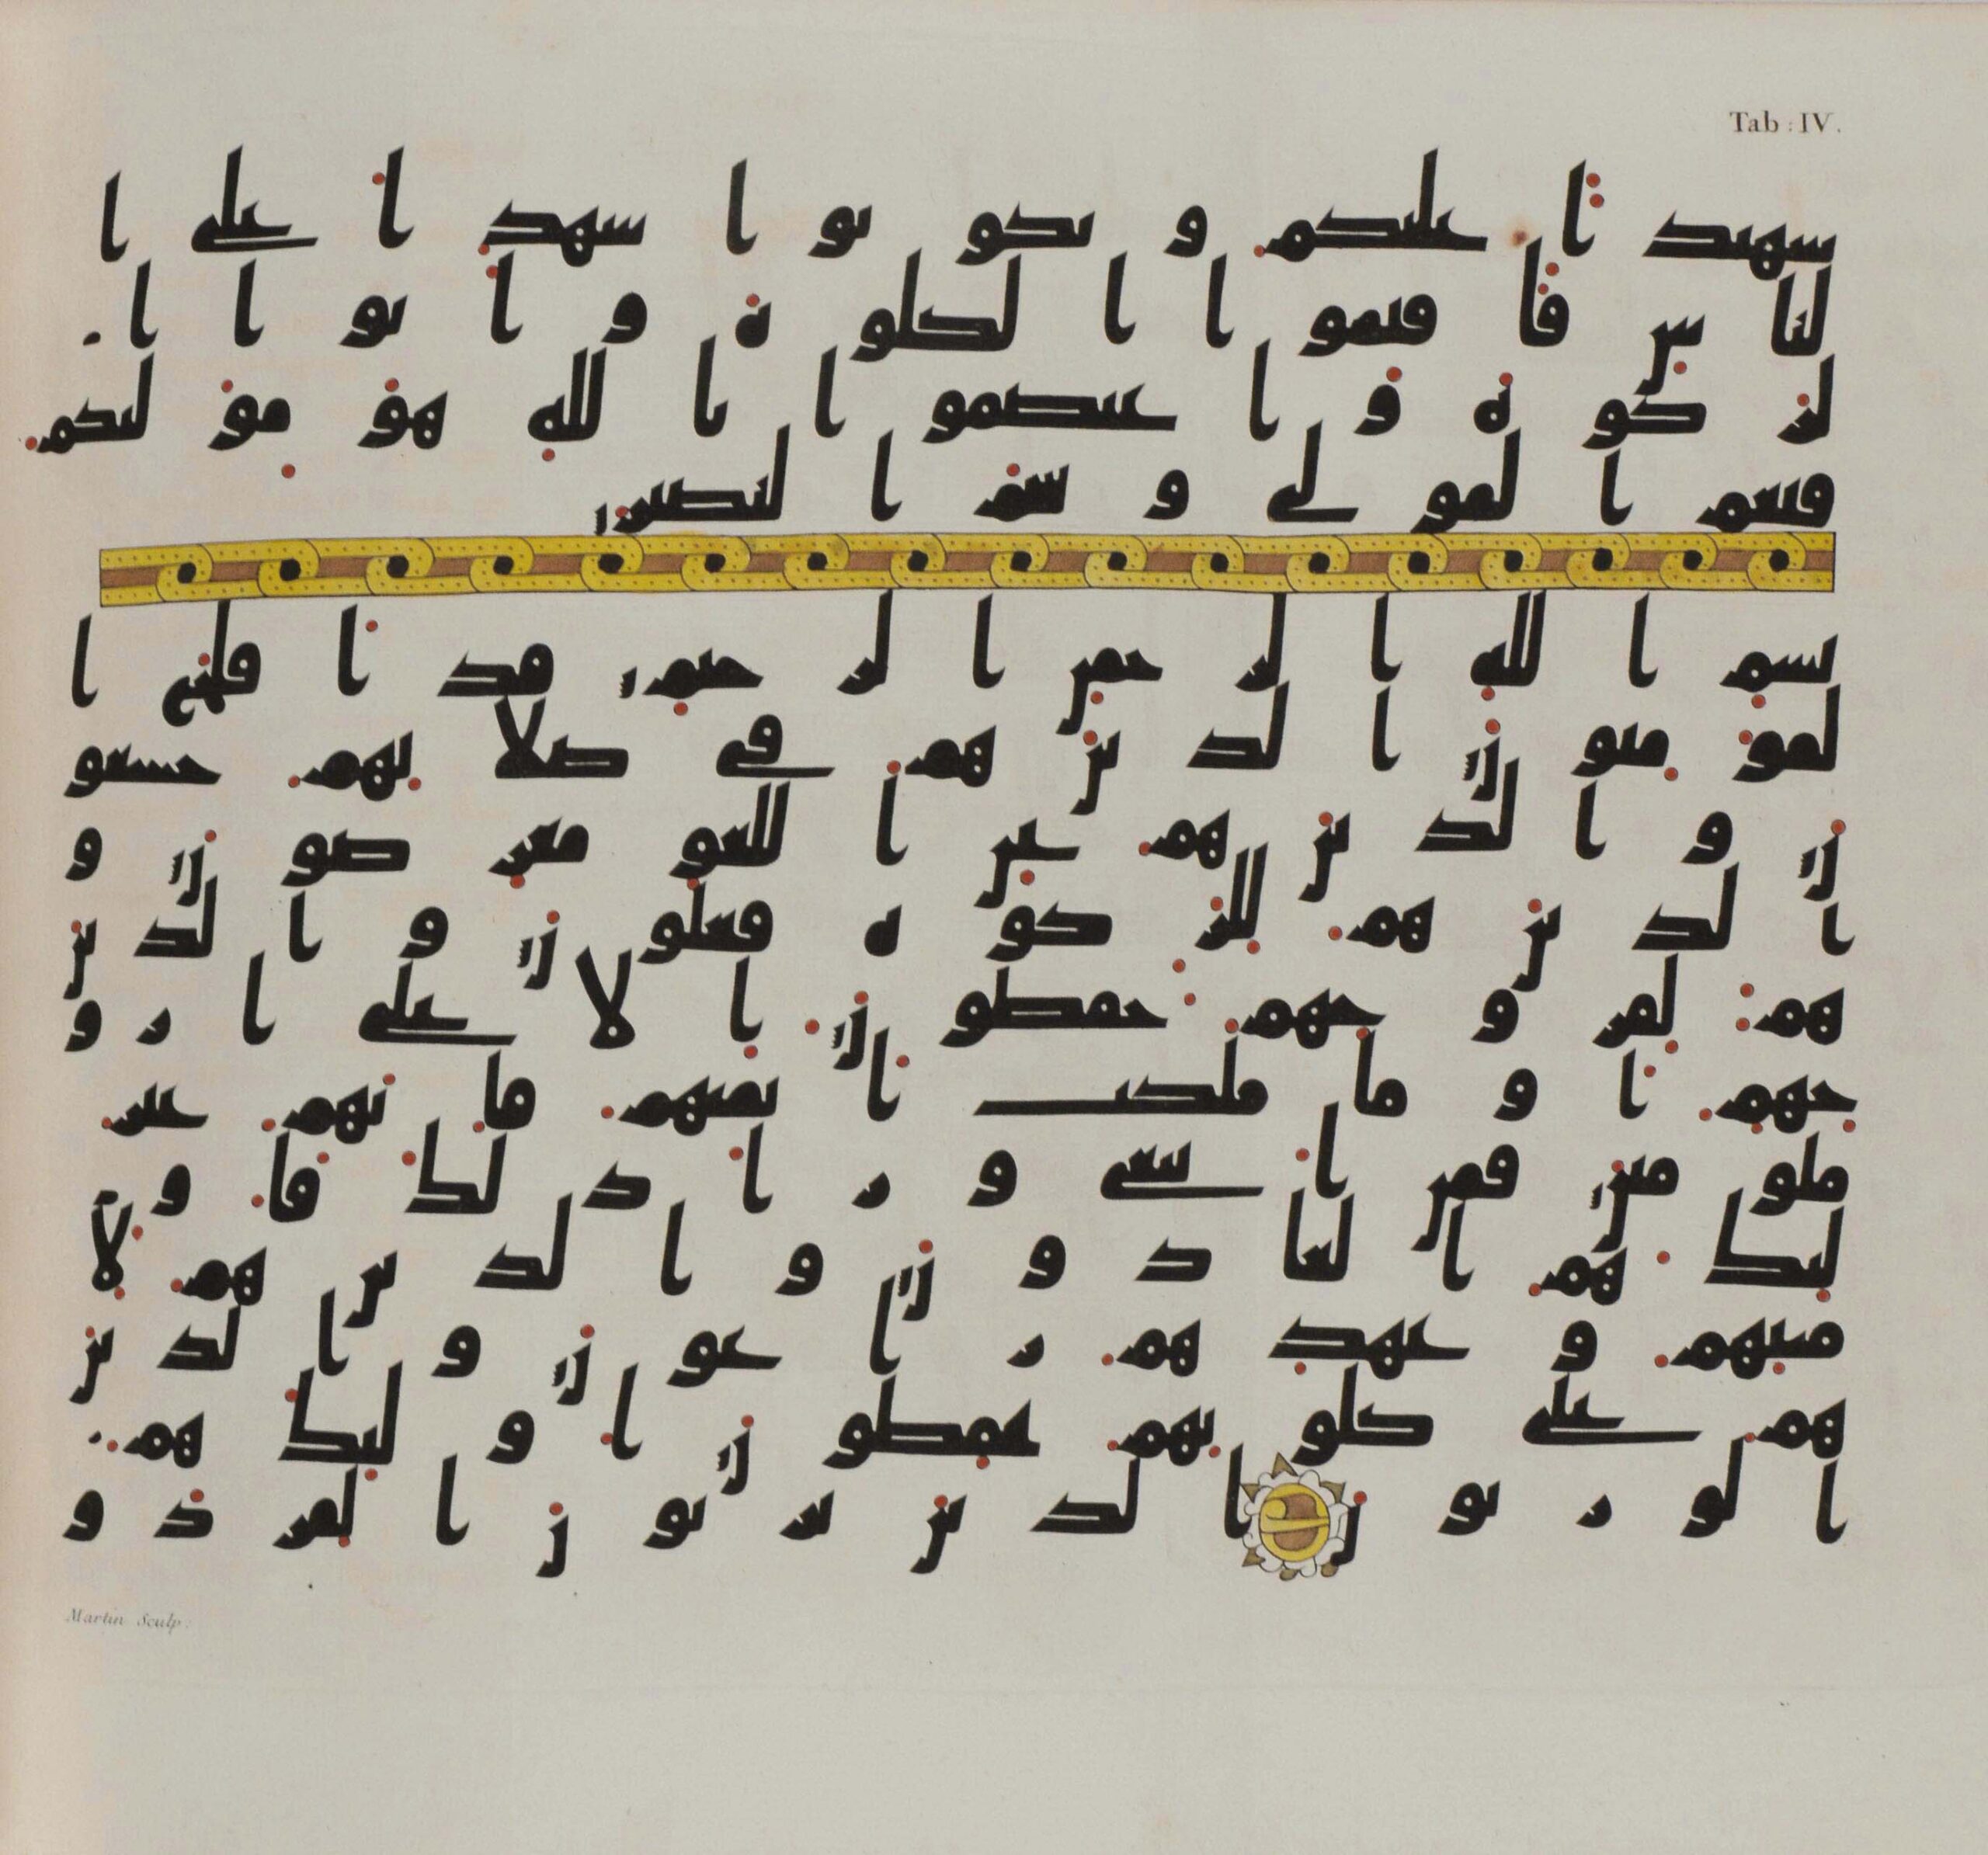 Tab: IV.
شهيدا عليكم وتكونوا شهدا على ا
لناس فاقيموا الصلوة واتوا ا
لزكوة واعتصموا بالله هو موليكم
فنعم المولى ونعم النصير
بسم الله الرحمن الرحيم قد افلح ا
لمومنون الذين هم في صلاتهم خشعو
ن والذين هم عن اللغو معرضون و
الذين هم للزكوة فعلون والذين
هم لفروجهم حفظون الا على ازو
جهم او ما ملكت ايمنهم فانهم غير
ملومين فمن ابتغى ورا ذلك فاو
ليك هم العادون والذين هم لا
منتهم وعهدهم راعون والذين
هم على صلوتهم يحفظون اوليك هم
الورثون الذين يرثون الفردو
Martin Sculp: